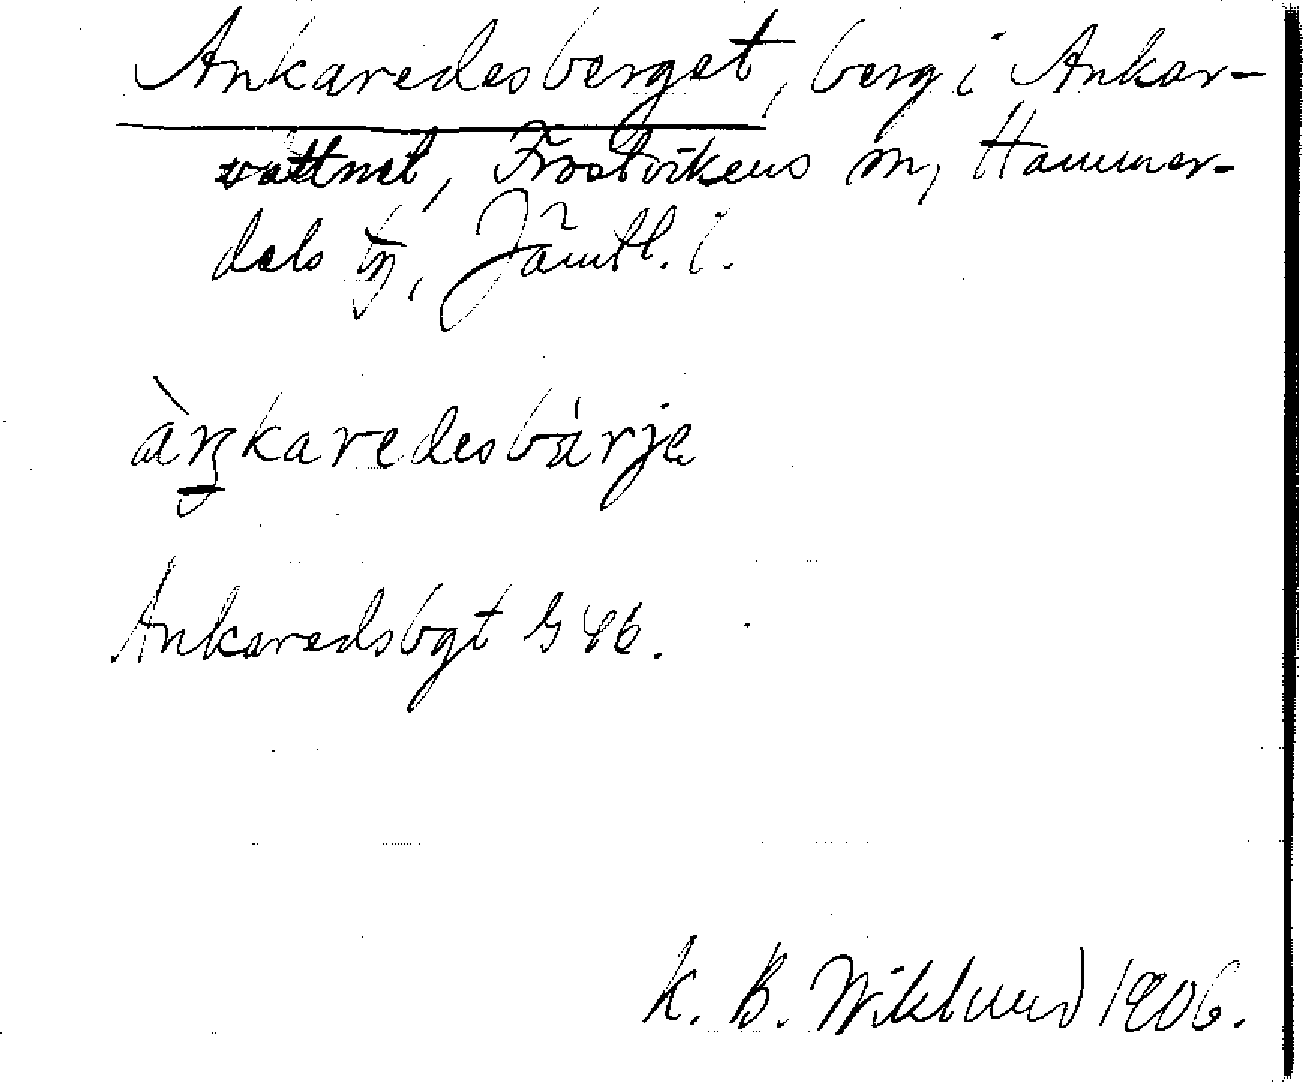 Ankaredesberget, berg i Ankar-
vattnet, Frostvikens sn, Hammer-
dals tg, Jämtl. l.
àŋkaredesbàrje
Ankaredsbgt G 46.
K. B. Wiklund 1906.